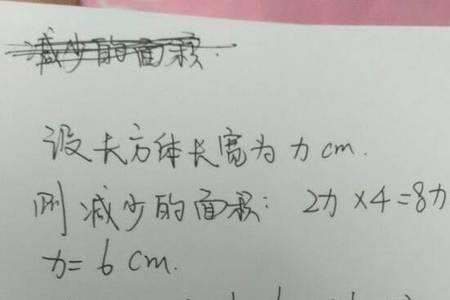 减少的面积.
设长方体长宽为 x cm.
则减少的面积: 2x ×4=8x
x= 6 cm.